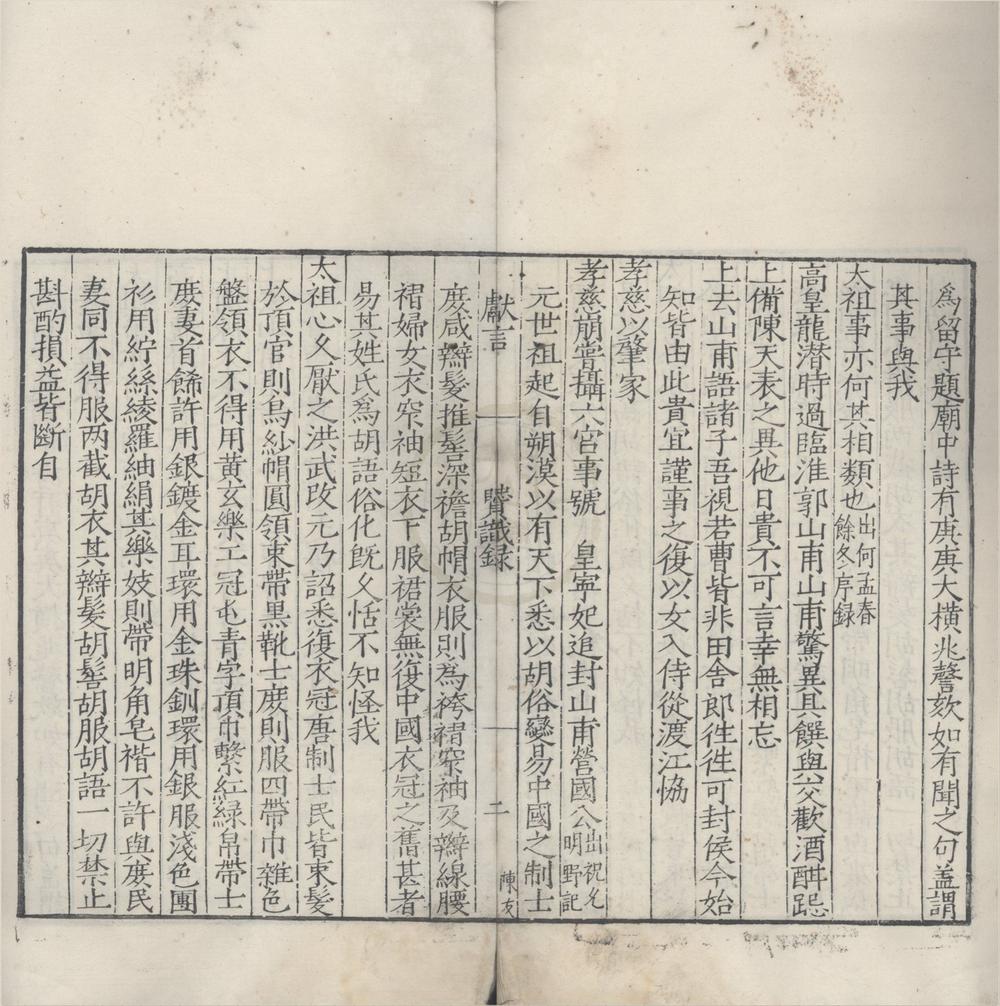 爲留守題廟中詩有庚庚大橫兆謦欬如有聞之句盖謂
其事與我
太祖事亦何其相類也出何孟春餘冬序録
高皇龍潜時過臨淮郭山甫山甫驚異其饌與㳟歡酒酣跽
上備陳天表之異他日貴不可言幸無相忘
上去山甫語諸子吾視若曹皆非田舍郎徃徃可封侯今始
知皆由此貴宜謹事之復以女入侍從渡江恊
孝慈以肇家
孝慈崩甞攝六宮事號 皇寧妃追封山甫營國公出祝允明野記
元世祖起自朔漠以有天下悉以胡俗變易中國之制士
獻言 賸識録 二 陳友
庶咸辮髮推髻深襜胡帽衣服則爲袴褶窄袖及辮線腰
褶婦女衣窄袖短衣下服裙裳無復中國衣冠之舊甚者
易其姓氏爲胡語俗化旣久恬不知怪我
太祖心久厭之洪武改元乃詔悉復衣冠唐制士民皆束髮
於頂官則烏紗帽圓領束帶黑靴士庶則服四帶巾雜色
盤領衣不得用黄玄樂工冠屯青字頂巾繫紅緑帛帶士
庶妻首餙許用銀鍍金耳環用金珠釧環用銀服淺色團
衫用紵絲綾羅紬絹其樂妓則帶明角皂褙不許與庶民
妻同不得服两截胡衣其辮髮胡髻胡服胡語一切禁止
斟酌損益皆斷自